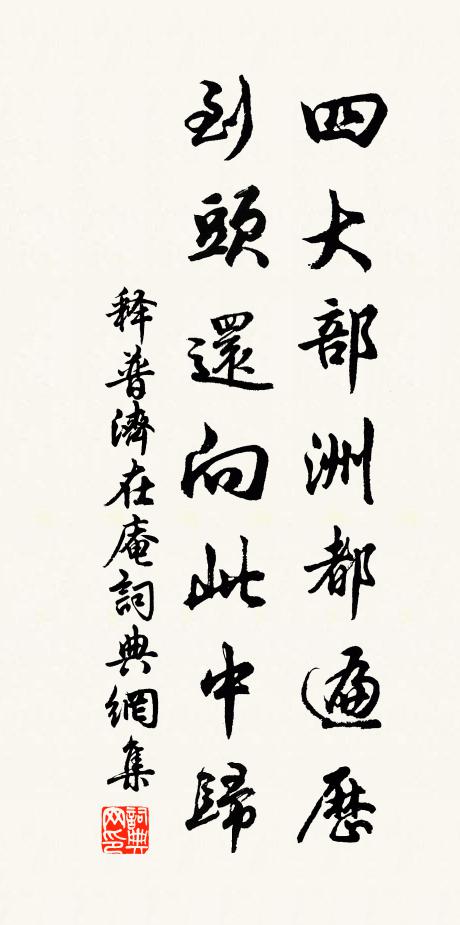 四大部洲都遍歷
到頭還向此中歸
释普濟在庵詞典網集
詞典网印